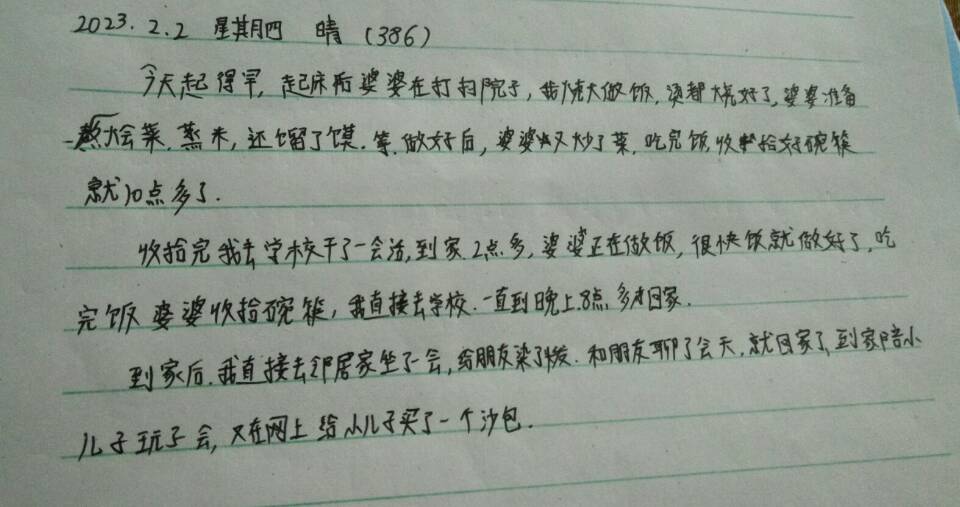 2023.2.2 星期四 晴 (386)
今天起得早,起床后婆婆在打扫院子,我烧火做饭.汤都烧好了,婆婆准备
烩菜.蒸米,还馏了馍.等做好后,婆婆又炒了菜.吃完饭,收拾好碗筷
就10点多了.
收拾完我去学校干了一会活,到家2点多,婆婆正在做饭,很快饭就做好了,吃
完饭婆婆收拾碗筷,我直接去学校.一直到晚上8点多才回家.
到家后.我直接去邻居家坐了一会,给朋友染了发.和朋友聊了会天.就回家了,到家陪小
儿子玩了会,又在网上给小儿子买了一个沙包.